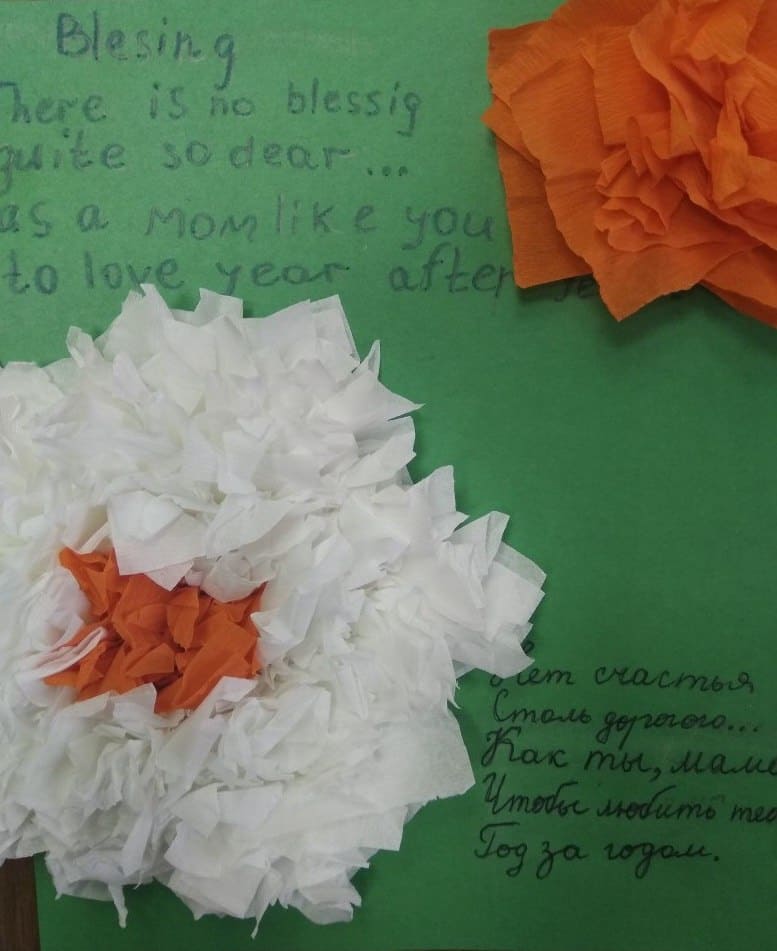 Blesing
There is no blessig
quite so dear...
as a mom like you
to love year after
Нет счастья
Столь дорогого...
Как ты, мама
Чтобы любить
Год за годом.